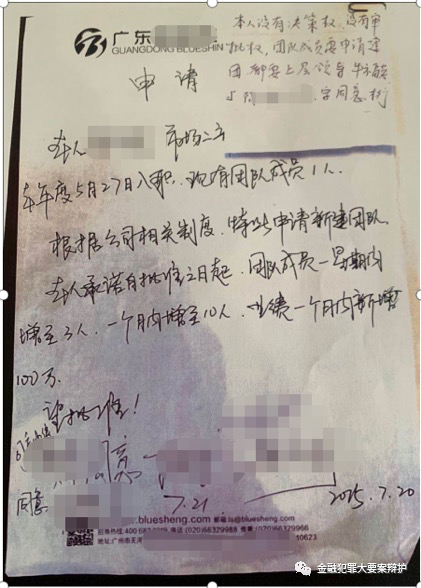 广东
GUANGDONG BLUESHIN
本人没有决策权，没有审
批权，团队成员要申请建
团都要上层领导
字同意
申请
本人 市场二
本年度5月27日入职，现有团队成员1人。
根据公司相关制度，特此申请新建团队。
本人承诺自批准之日起，团队成员一星期内
增至3人，一个月内增至10人，业绩一个月内新增
100万。
望批准！
同意
7.21
2015.7.20
www.bluesheng.com
(020)66329988
(020)66329966
地址:广州市天河
10623
金融犯罪大要案辩护